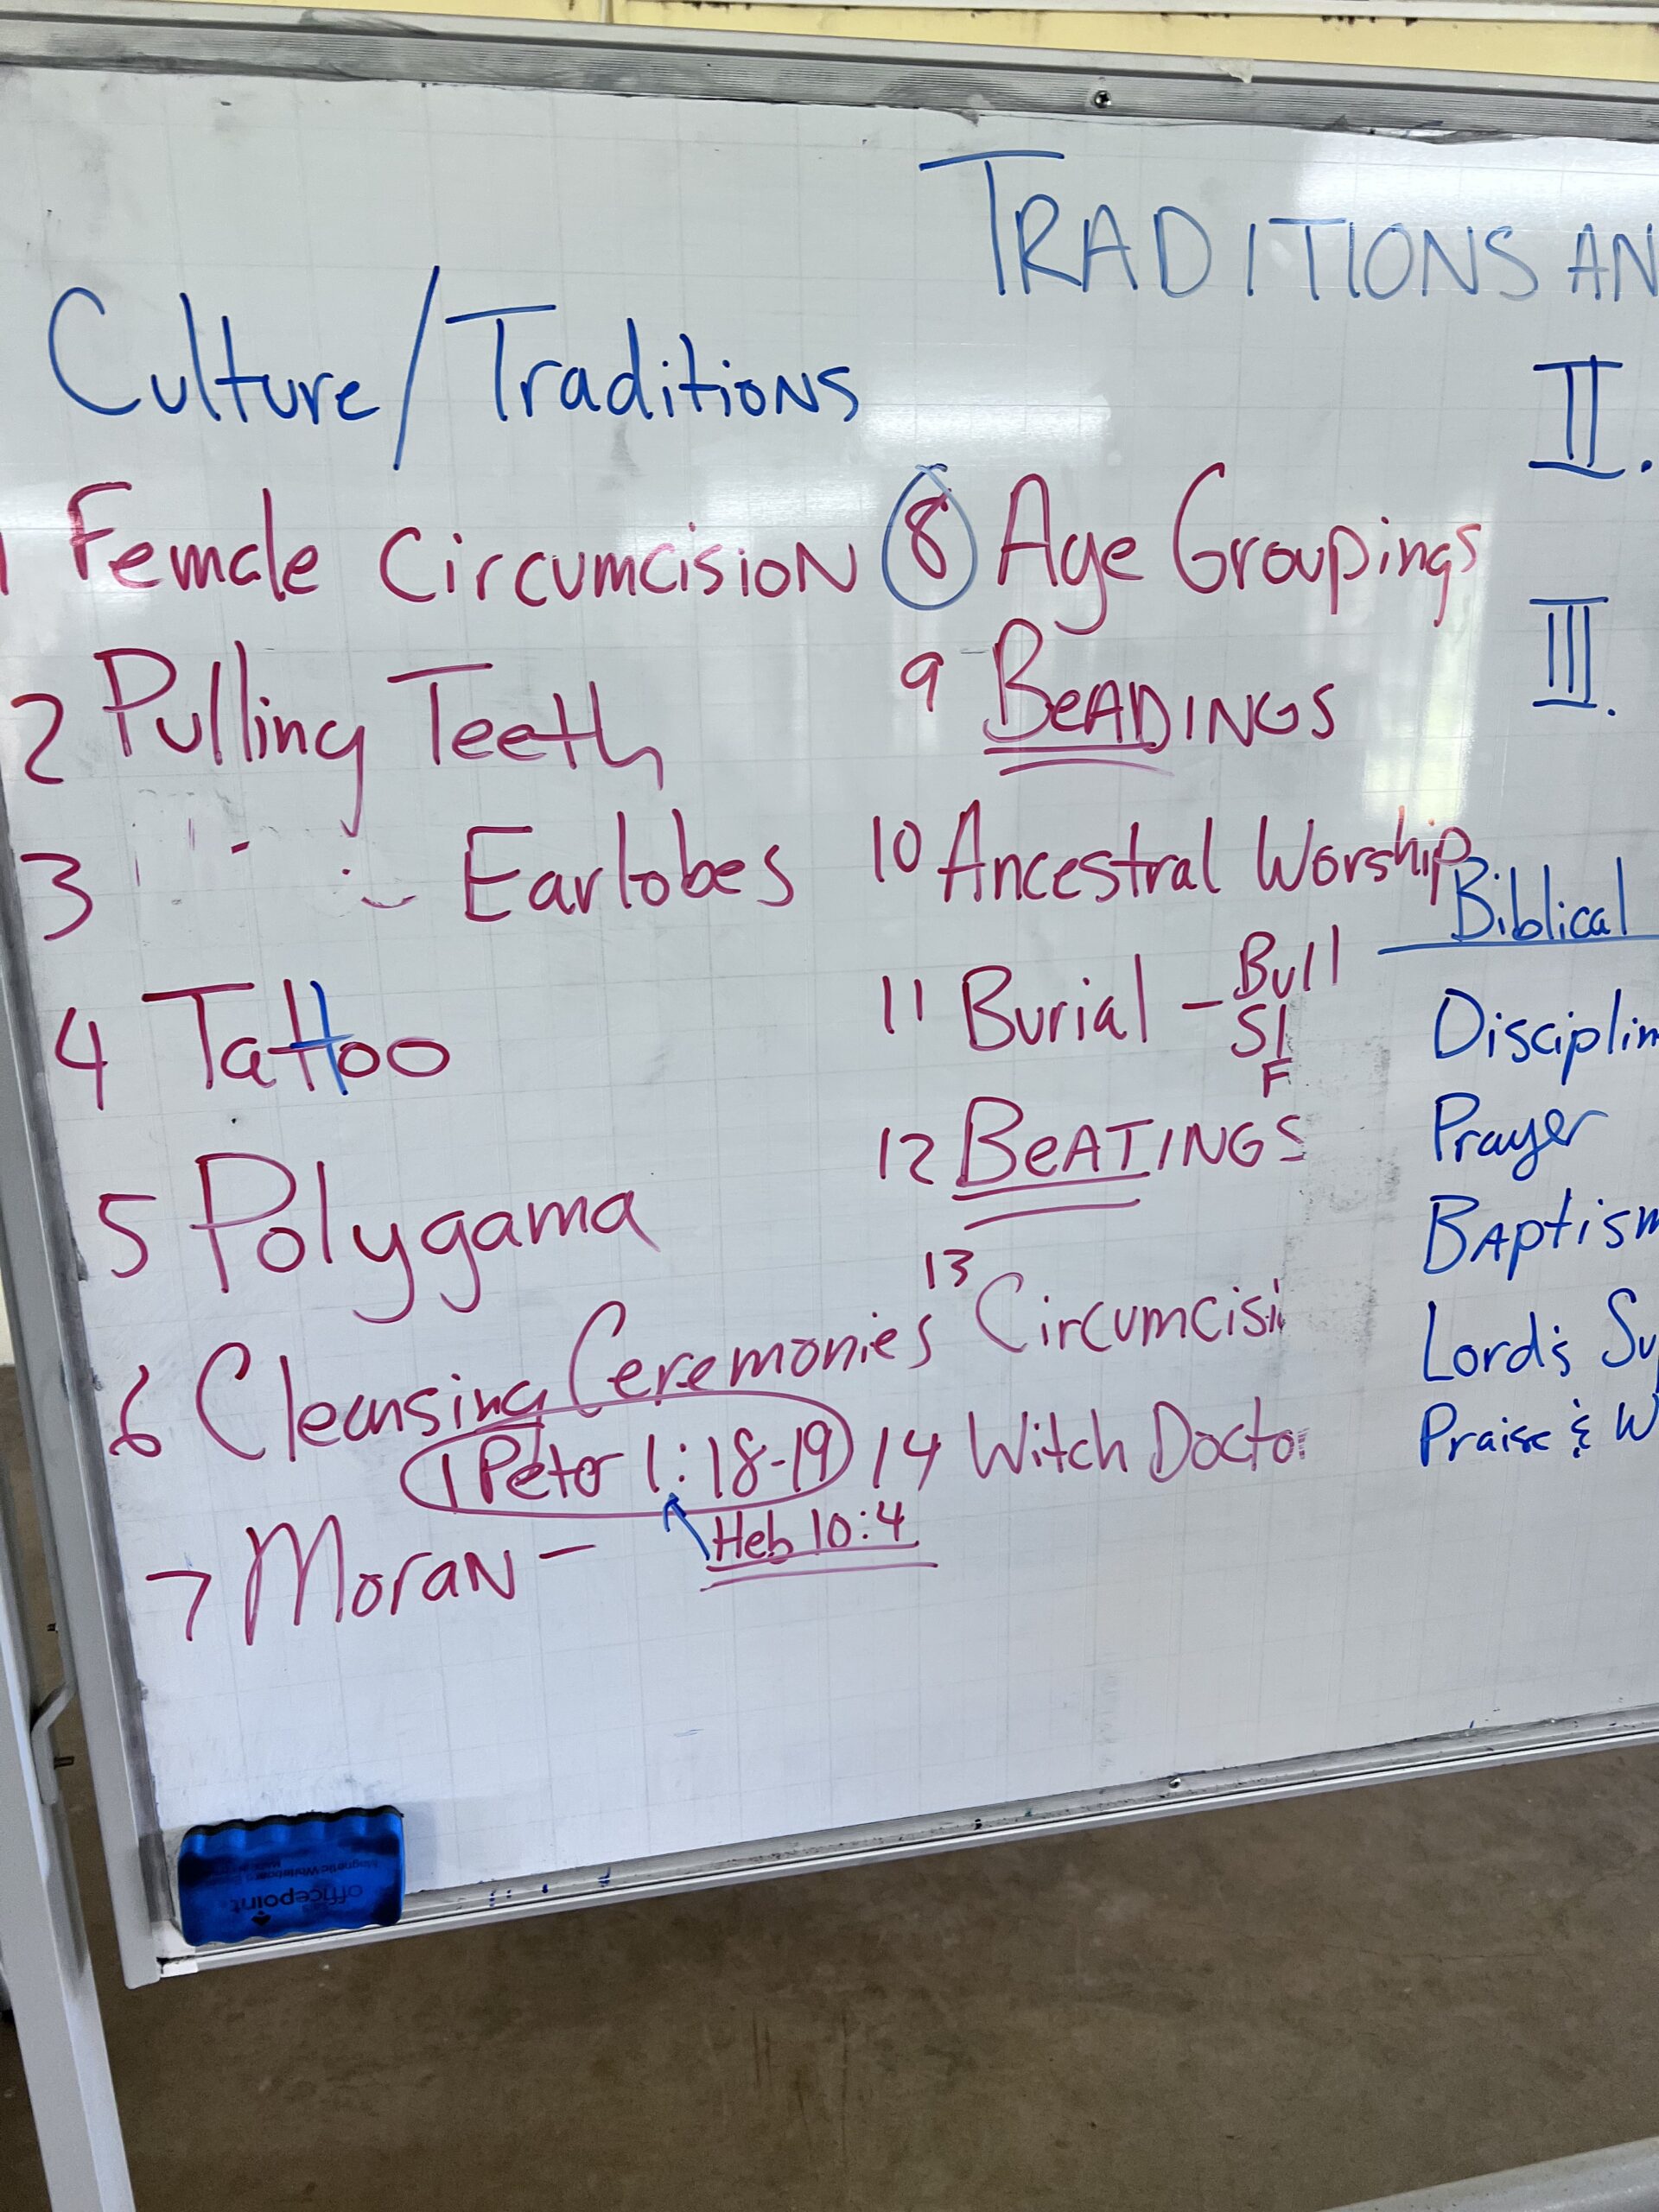 TRADITIONS AN
Culture/Traditions
1 Female Circumcision
2 Pulling Teeth
3 Earlobes
4 Tattoo
5 Polygama
6 Cleansing Ceremonies
1 Peter 1:18-19
Heb 10:4
7 Moran -
8 Age Groupings
9 BeADINGS
10 Ancestral Worship
11 Burial - Bull
SI
F
12 BeATINGS
13 Circumcisi
14 Witch Docto
II.
III.
Biblical
Disciplin
Prayer
BAptism
Lord's Su
Praise & W
officepoint
Magnetic Whiteboard